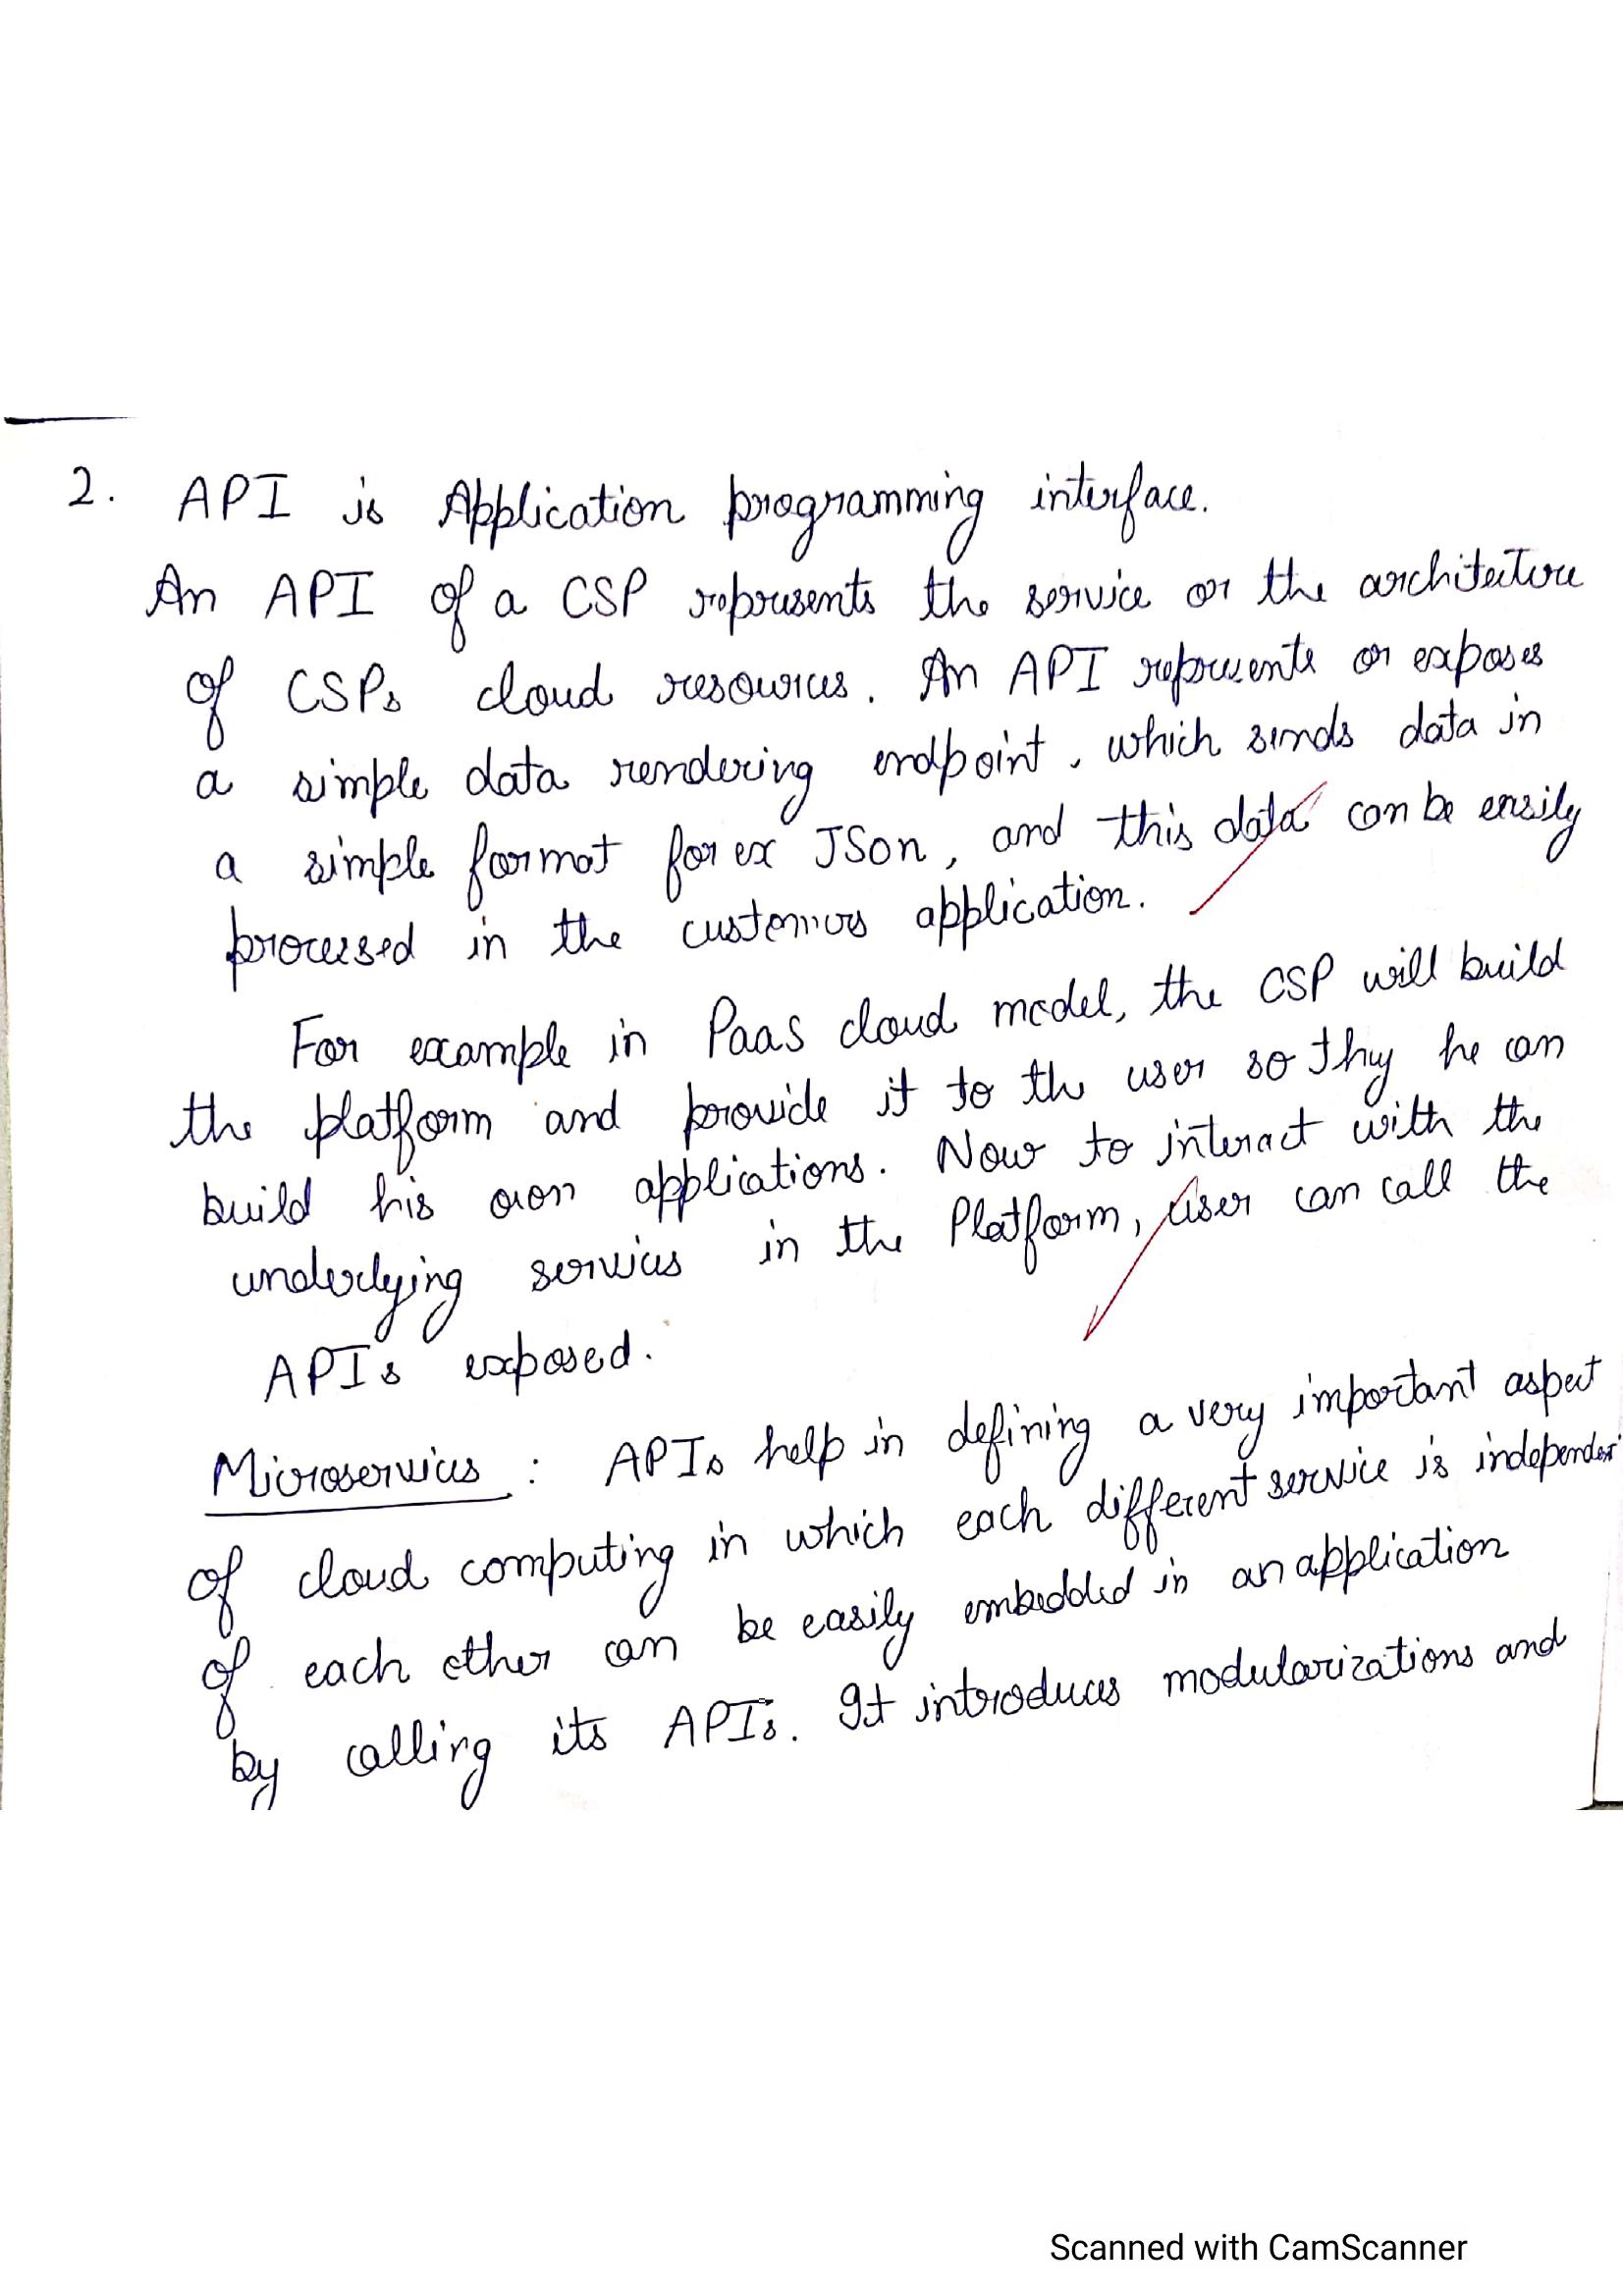 2. API is Application programming interface.
An API of a CSP represents the service or the architecture
of CSPs cloud resources. An API represents or exposes
a simple data rendering endpoint, which sends data in
a simple format for ex JSon, and this data can be easily
processed in the customers application.
For example in Paas cloud model, the CSP will build
the platform and provide it to the user so thy he can
build his own applications. Now to interact with the
underlying services in the Platform, user can call the
APIs exposed.
Microservices : APIs help in defining a very important aspect
of cloud computing in which each different service is independent
of each other can be easily embedded in an application
by calling its APIs. It introduces modularizations and
Scanned with CamScanner